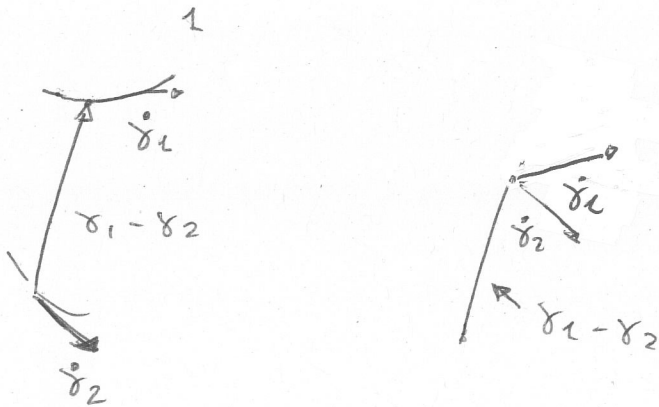 1
γ̇₁
γ₁ - γ₂
γ̇₂
γ̇₁
γ̇₂
γ₁ - γ₂